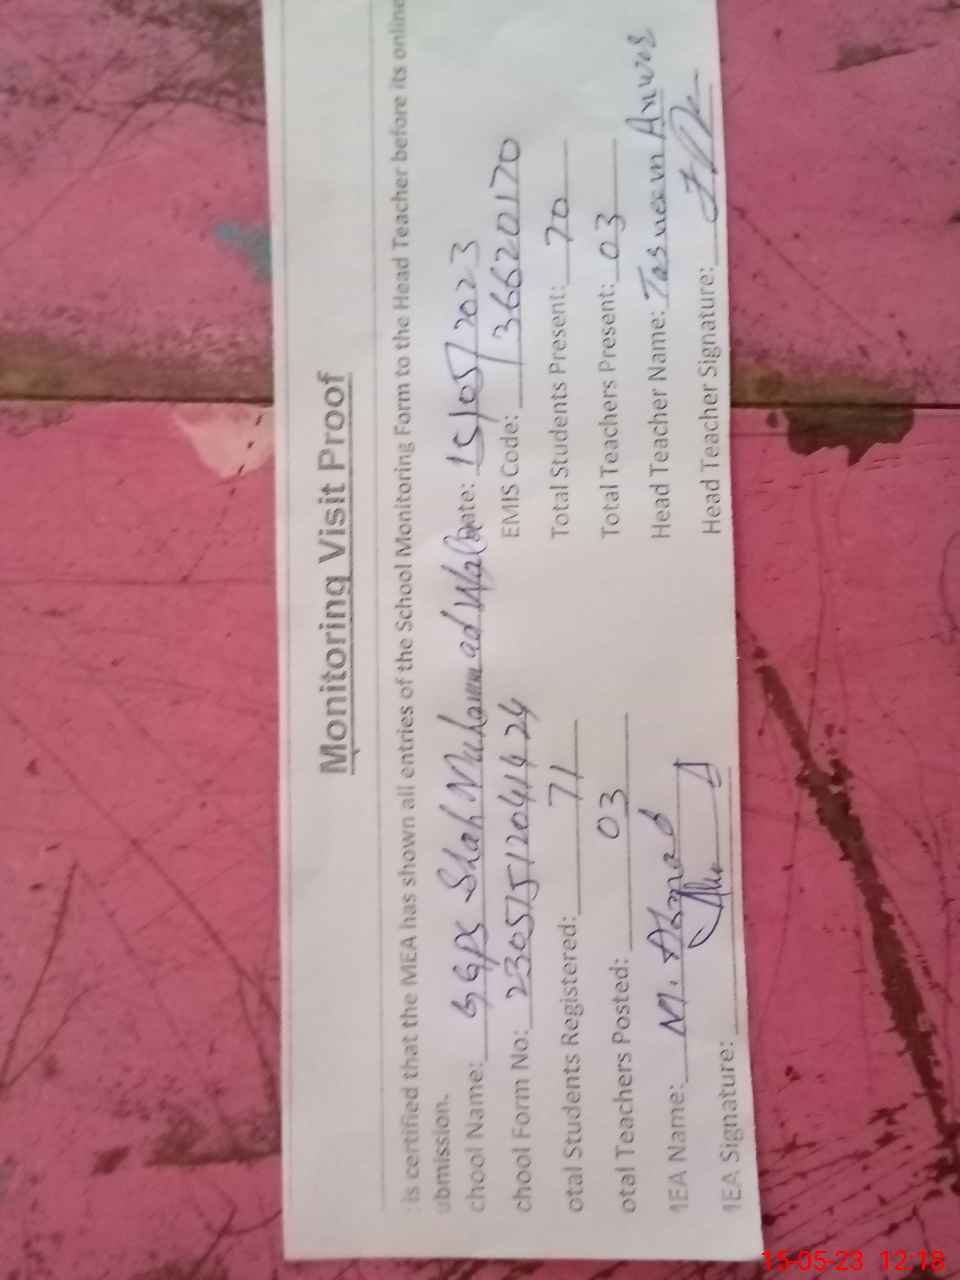 Monitoring Visit Proof
is certified that the MEA has shown all entries of the School Monitoring Form to the Head Teacher before its online
ubmission.
chool Name: GGPS Shah Muhammad Wala Date: 15/05/2023
chool Form No: 230515120414 24 EMIS Code: 36620170
otal Students Registered: 71 Total Students Present: 70
otal Teachers Posted: 03 Total Teachers Present: 03
MEA Name: M. Ahmad Head Teacher Name: Tasneem Anwer
MEA Signature: Head Teacher Signature:
15-05-23 12:18